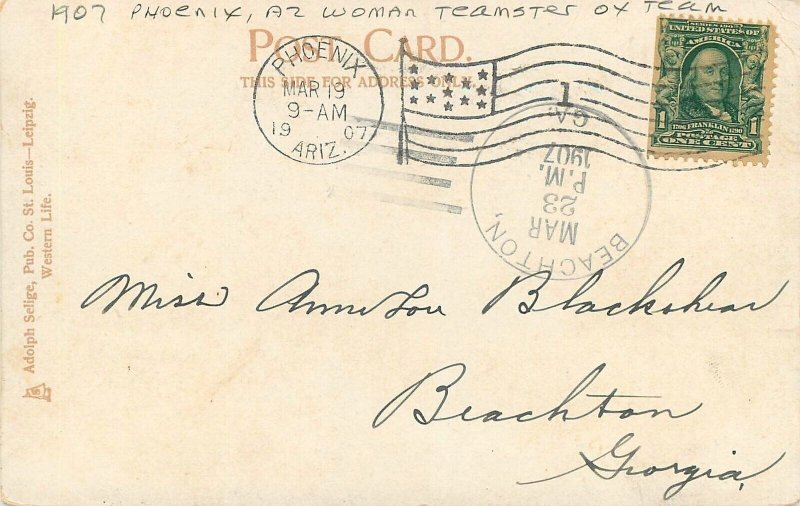 1907 PHOENIX, AZ WOMAN TEAMSTER OX TEAM
POST CARD.
THIS SIDE FOR ADDRESS ONLY.
PHOENIX
MAR 19
9-AM
19 07
ARIZ.
1
SERIES 1902
UNITED STATES OF
AMERICA
1 1
1706 FRANKLIN 1790
POSTAGE
ONE CENT
BEACHTON,
MAR
23
P.M.
1907
GA.
Adolph Selige, Pub. Co. St. Louis—Leipzig.
Western Life.
Miss Annie Lou Blackshear
Beachton
Georgia,